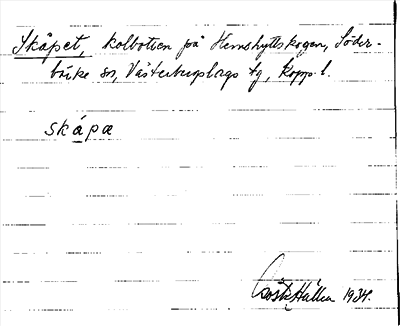 Skåpet, kolbotten på Hemshyttskogen, Söder-
bärke sn, Västerbergslags tg, Kopp. l.
skápæ
Gösta Hallén 1934.